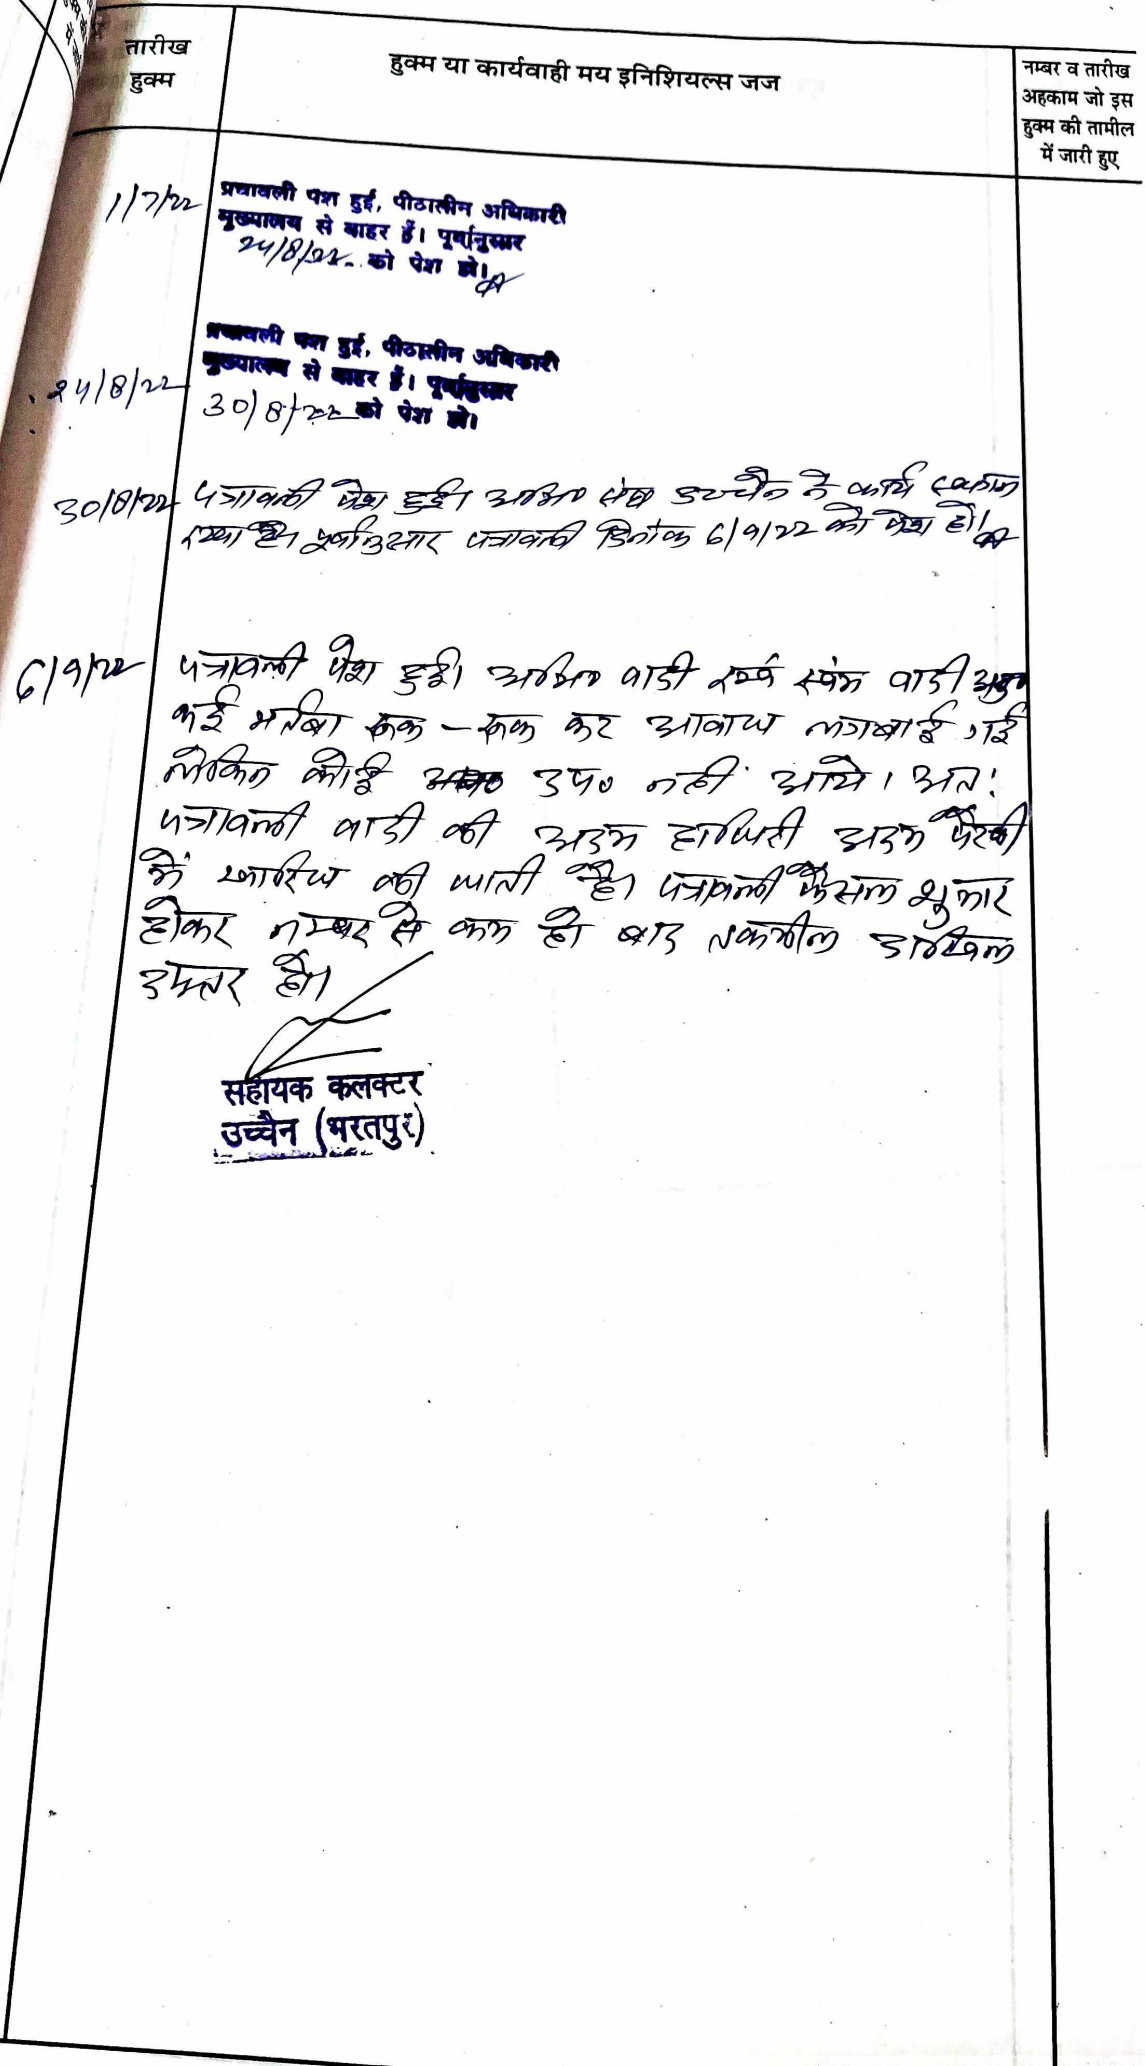 तारीख
हुक्म
हुक्म या कार्यवाही मय इनिशियल्स जज
नम्बर व तारीख
अहकाम जो इस
हुक्म की तामील
में जारी हुए
1/7/22
पत्रावली पेश हुई, पीठासीन अधिकारी
मुख्यालय से बाहर हैं। पूर्वानुसार
24/8/22 को पेश हो।
24/8/22
पत्रावली पेश हुई, पीठासीन अधिकारी
मुख्यालय से बाहर हैं। पूर्वानुसार
30/8/22 को पेश हो।
30/8/22 पत्रावली पेश हुई। अभि० संघ उच्चैन ने कार्य स्थगन
रखा है। पूर्वानुसार पत्रावली दिनांक 6/9/22 को पेश हो।
6/9/22 पत्रावली पेश हुई। अभि० वादी स्वंम वादी
कई मर्तबा रूक - रूक कर आवाज लगबाई गई
लेकिन कोई उप० नहीं आये। अत:
पत्रावली वादी की अदम हाजिरी अदम पैरवी
में खारिज की जाती है। पत्रावली फैसल शुमार
होकर नम्बर से कम हो बाद तकमील दाखिल
दफ्तर हो।
सहायक कलक्टर
उच्चैन (भरतपुर)